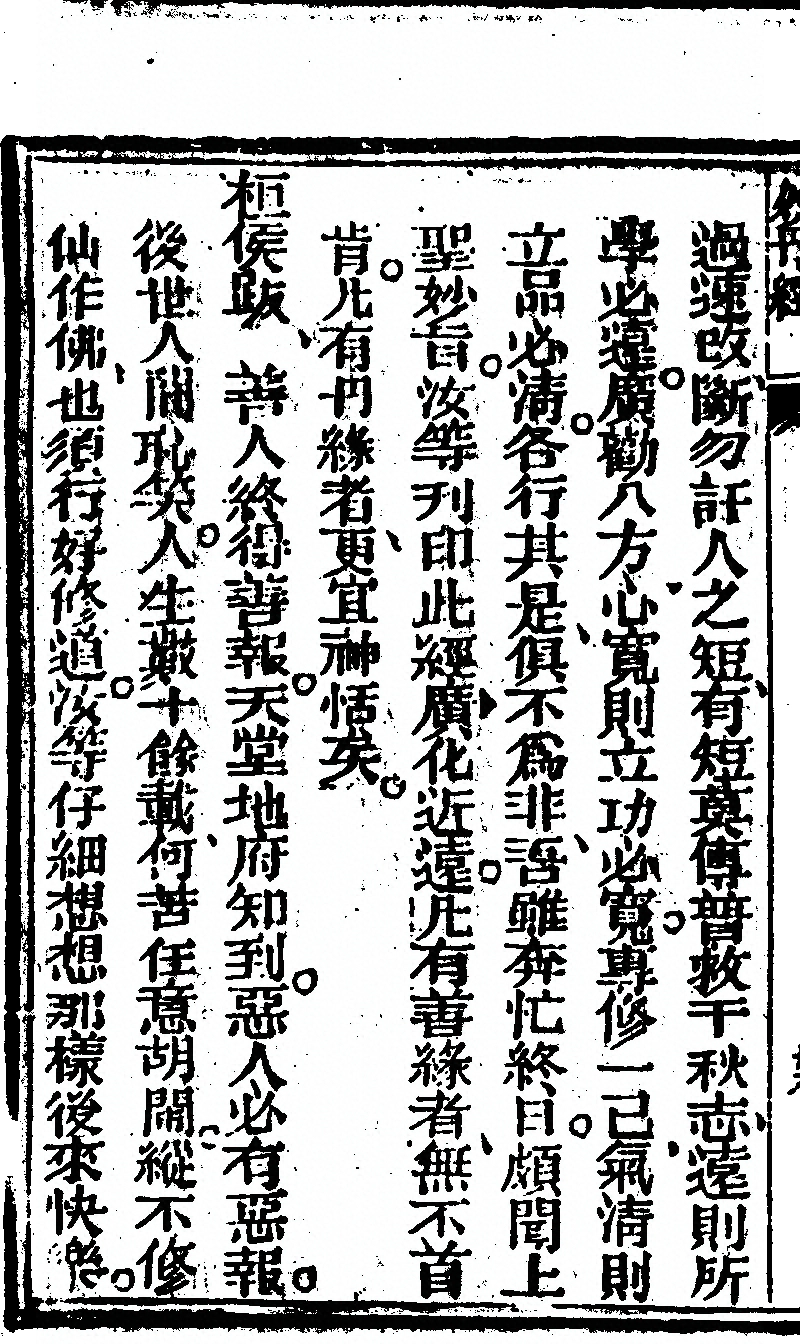 過速改斷勿訐人之短有短莫傳普救千秋志遠則所
學必遠廣勸八方心寬則立功必寬專修一己氣淸則
立品必淸各行其是俱不爲非吾雖奔忙終日頗聞上
聖妙旨汝等刋印此經廣化近遠凡有善緣者無不首
肯凡有丹緣者更宜神恬矣
桓侯跋　善人終得善報天堂地府知到惡人必有惡報
後世人間恥笑人生數十餘載何苦任意胡鬧縱不修
仙作佛也須行好修道汝等仔細想想那樣後來快樂